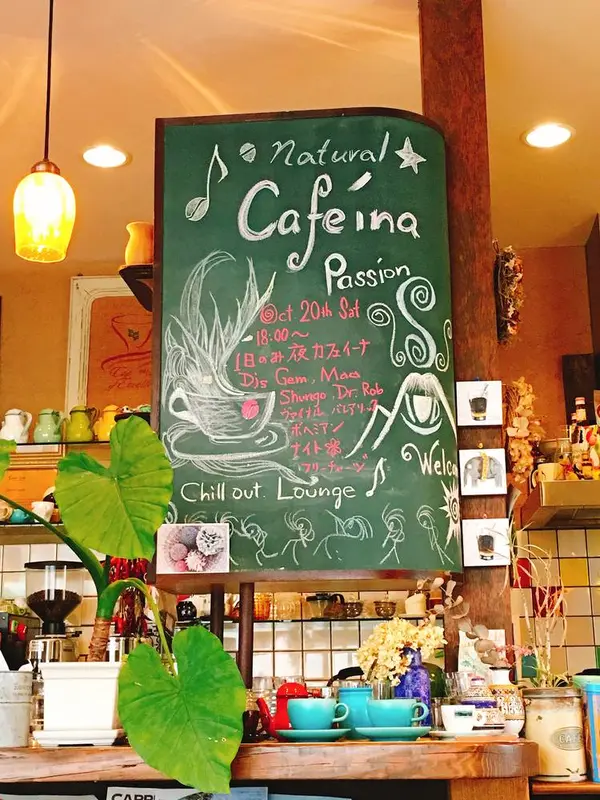 Natural
Cafeína
Passion
Oct 20th Sat
18:00～
1日のみ夜カフェイーナ
Djs Gem, Mao
Shungo Dr. Rob
ヴァイナル バレアリック
ボヘミアン
ナイト
フリーチャージ
Chill out. Lounge
Welco
CAFE
CAPP